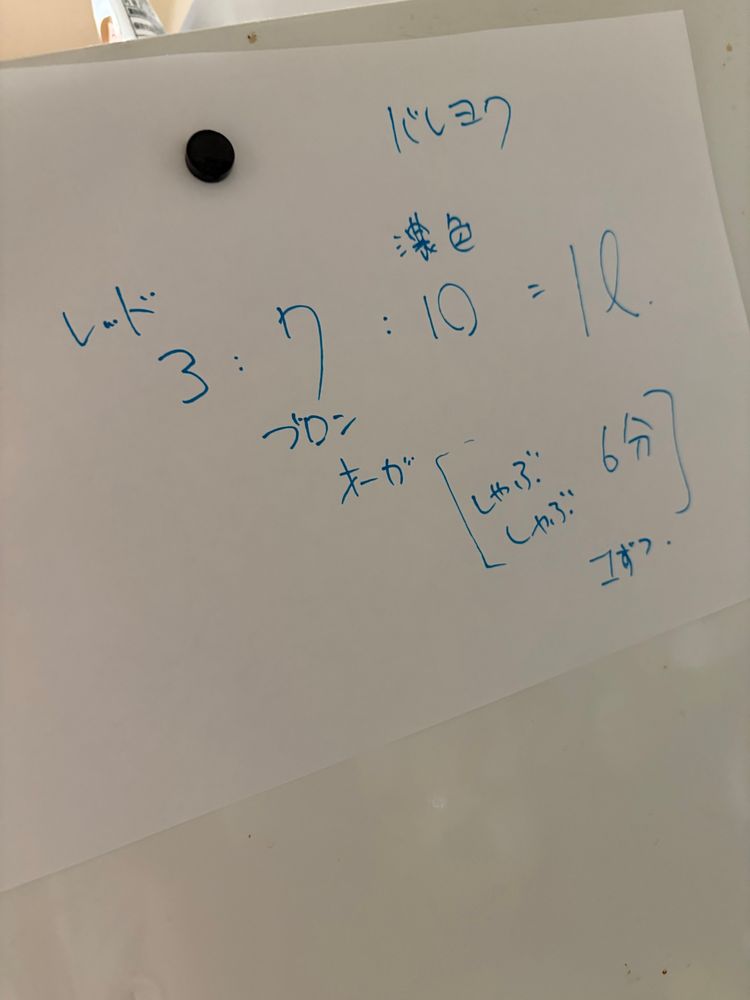 バレヨク
濃色
レッド
3 : 7 : 10 = 1ℓ.
ブロン
オーガ
しゃぶ 6分
しゃぶ
1ずつ.